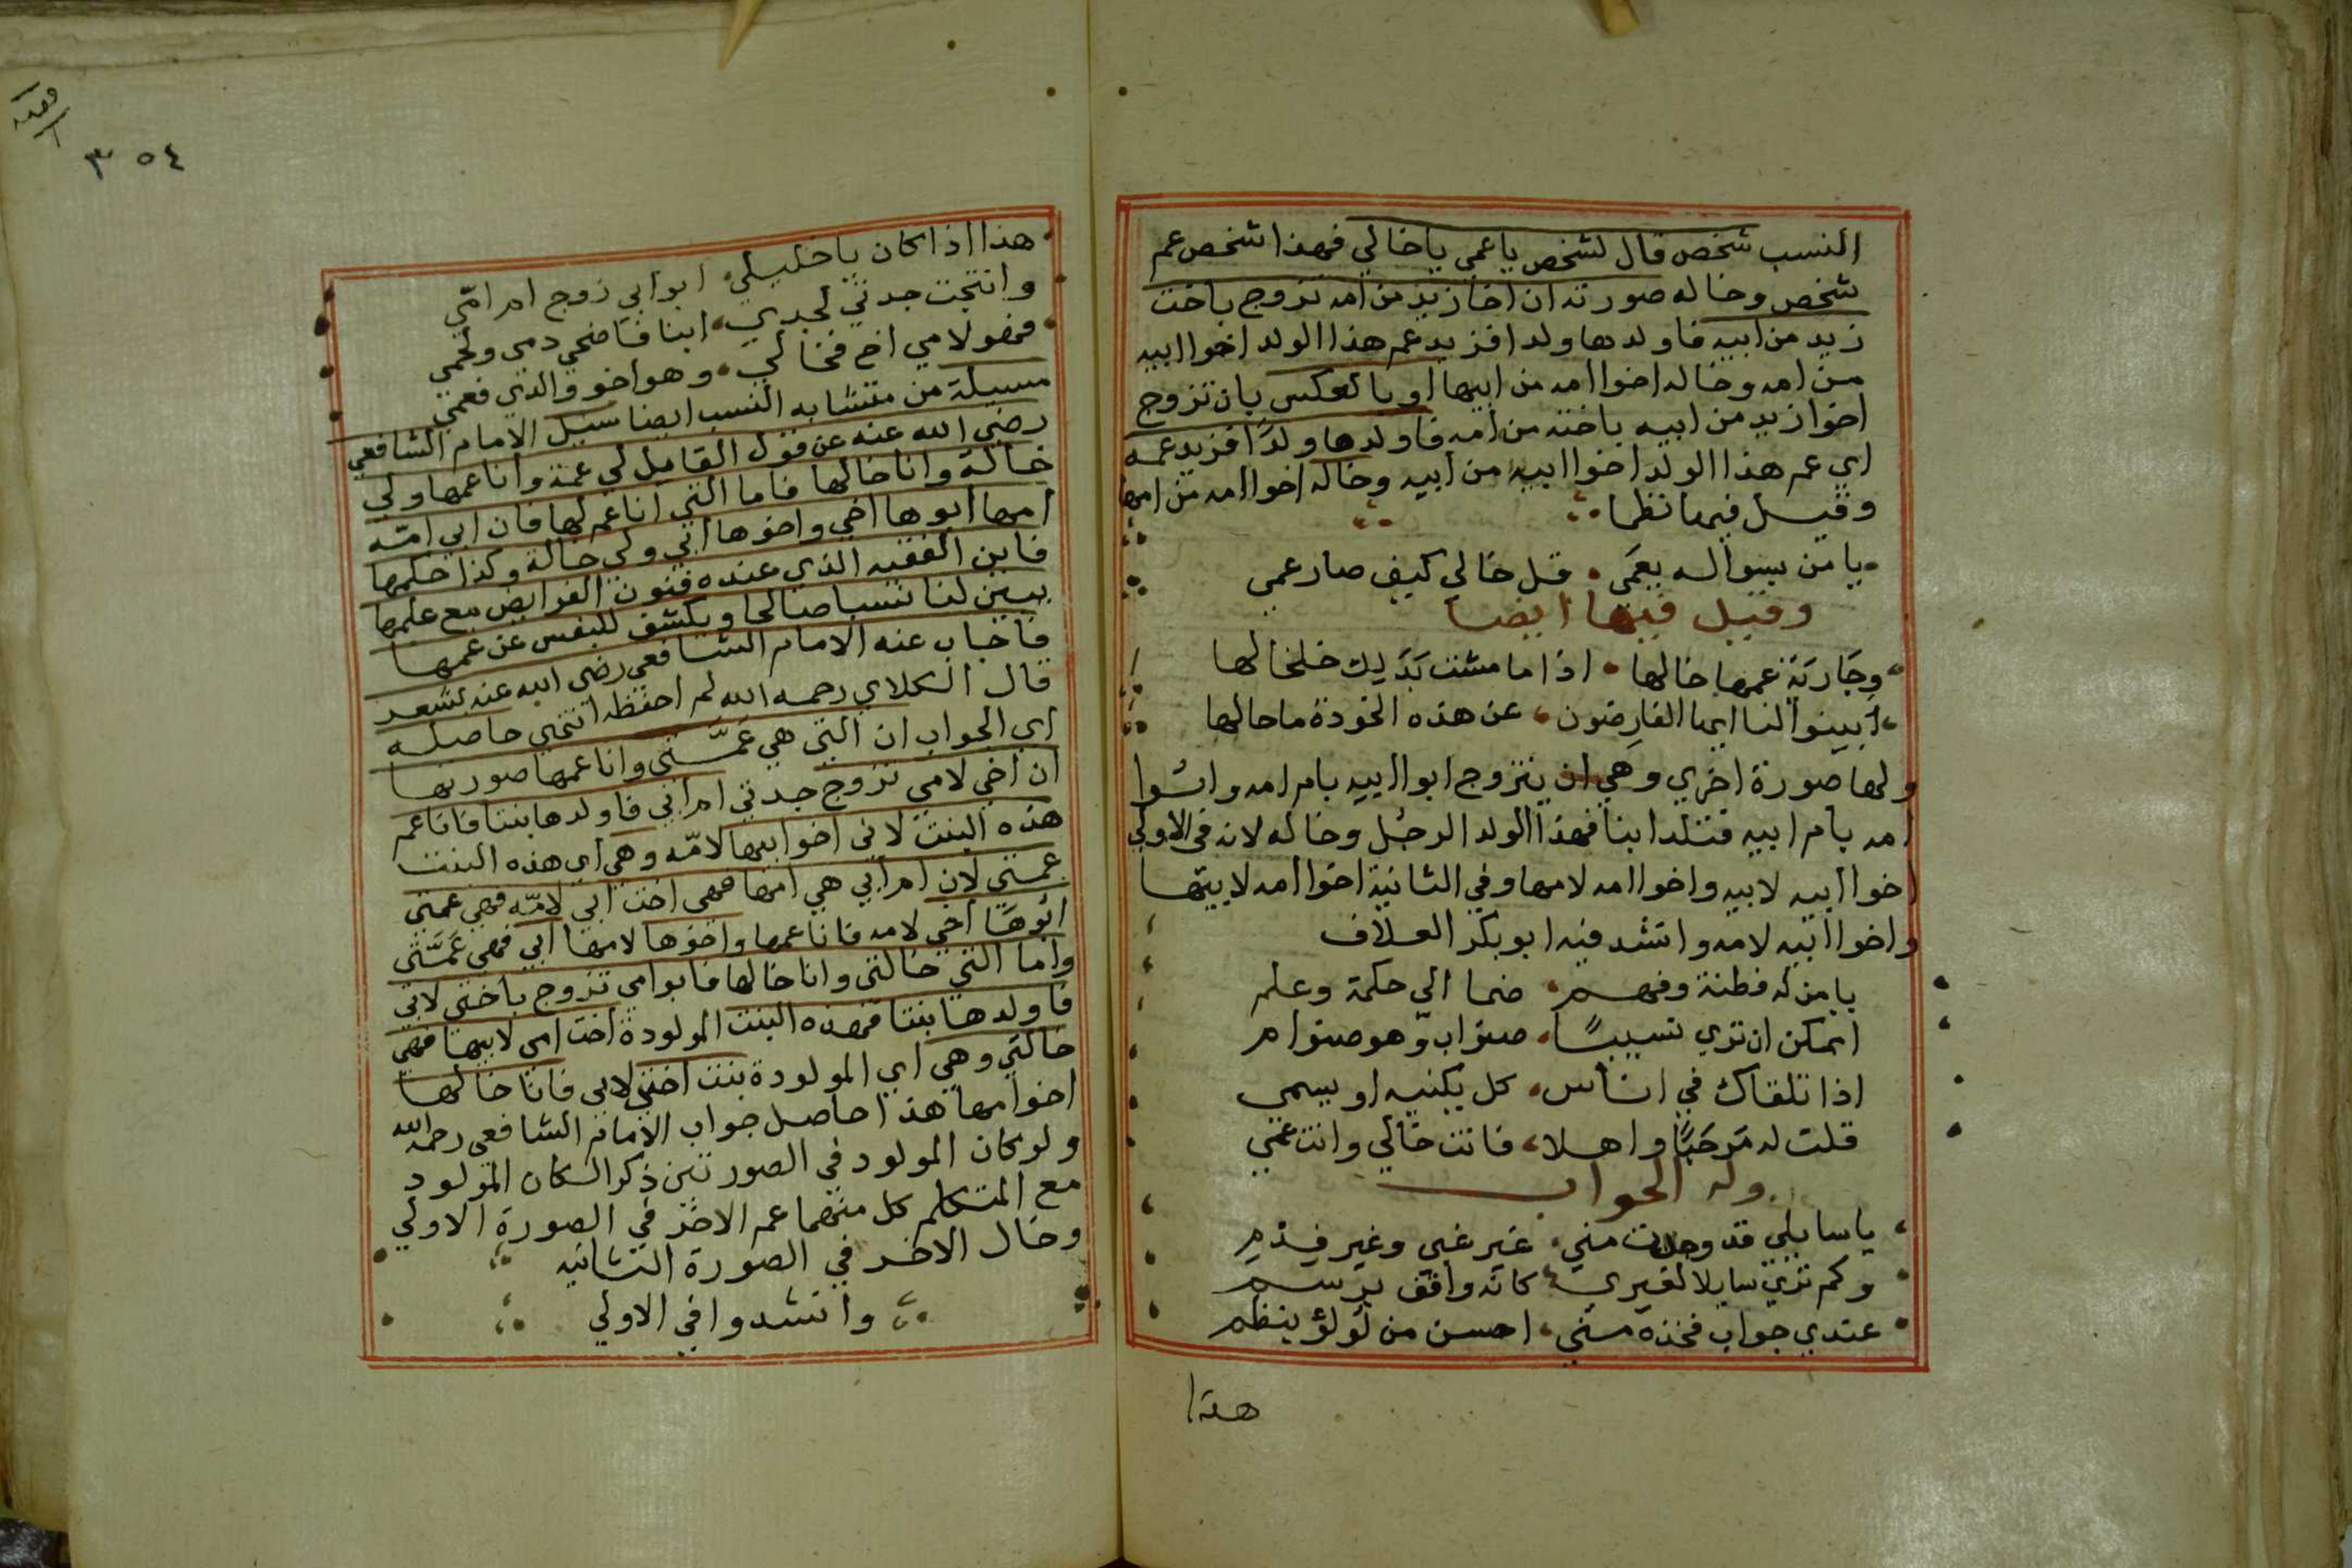 النسب شخص قال لشخص يا عمي يا خالي فهذا شخص عم
شخص وخاله صورته ان اخا زيد من امه تزوج باخت
زيد من ابيه فاولدها ولدا فزيد عم هذا الولد اخوا ابيه
من امه وخاله اخوا امه من ابيها او بالعكس بان تزوج
اخوا زيد من ابيه باخته من امه فاولدها ولدًا فزيد عمه
اي عم هذا الولد اخوا ابيه من ابيه وخاله اخوا امه من امها
وقيل فيها نظما
يا من سواله بعمي قل خالي كيف صار عمي
وقيل فيها ايضا
وجارية عمها خالها اذا ما مشت بَدَ ليك خلخالها
ابينوا لنا ايها الفارضون عن هذه الخودة ما حالها
ولها صورة اخري وهي ان يتزوج ابوا ابيه بام امه وابوا
امه بام ابيه فتلد ابنا فهذا الولد الرجل وخاله لانه في الاولي
اخوا ابيه لابيه واخوا امه لامها وفي الثانية اخوا امه لابيها
واخوا ابيه لامه وانشد فيه ابو بكر العلاف
يا من له فطنة وفهم ضما الي حكمة وعلم
ايمكن ان تري نسيبًا صنو اب وهو صنو ام
اذا تلقاك في اناس كل يكنيه او يسمي
قلت له مرحبًا واهلا فانت خالي وانت عمي
وله الجواب
يا سايلي قد وجدت مني غير غبي وغير فدم
وكم تري سايلا لغيري كانه واقف برسم
عندي جواب فخذه مني احسن من لؤلؤ بنظم
هذا
٣٥٤
هذا اذا كان يا خليلي ابو ابي زوج ام امي
وانتجت جدتي لجدي ابنا فاضحي دمي ولحمي
فهو لامي اخ فخالي وهو اخو والدي فعمي
مسيلة من متشابه النسب ايضا سيل الامام الشافعي
رضي الله عنه عن قول القايل لي عمة وانا عمها ولي
خالة وانا خالها فاما التي انا عم لها فان ابي امه
امها ابوها اخي واخوها ابي ولي خالة وكذا حكمها
فاين الفقيه الذي عنده فنون الفرايض مع علمها
يبين لنا نسبا صالحا ويكشف للنفس عن غمها
فاجاب عنه الامام الشافعي رضي الله عنه بشعر
قال الكلاي رحمه الله لم احفظه انتهي حاصله
اي الجواب ان التي هي عَمَّتي وانا عمها صورتها
ان اخي لامي تزوج جدتي ام ابي فاولدها بنتا فانا عم
هذه البنت لاني اخو ابيها لامه وهي اي هذه البنت
عمتي لان ام ابي هي امها فهي اخت ابي لامه فهي عمتي
ابوها اخي لامه فانا عمها واخوها لامها ابي فهي عَمَّتي
واما التي خالتي وانا خالها فابو امي تزوج باختي لابي
فاولدها بنتا فهذه البنت المولودة اخت امي لابيها فهي
خالتي وهي اي المولودة بنت اختي لابي فانا خالها
اخو امها هذا حاصل جواب الامام الشافعي رحمه الله
ولو كان المولود في الصورتين ذكرا لكان المولود
مع المتكلم كل منهما عم الاخر في الصورة الاولي
وخال الاخر في الصورة الثانيه
وانشدوا في الاولي